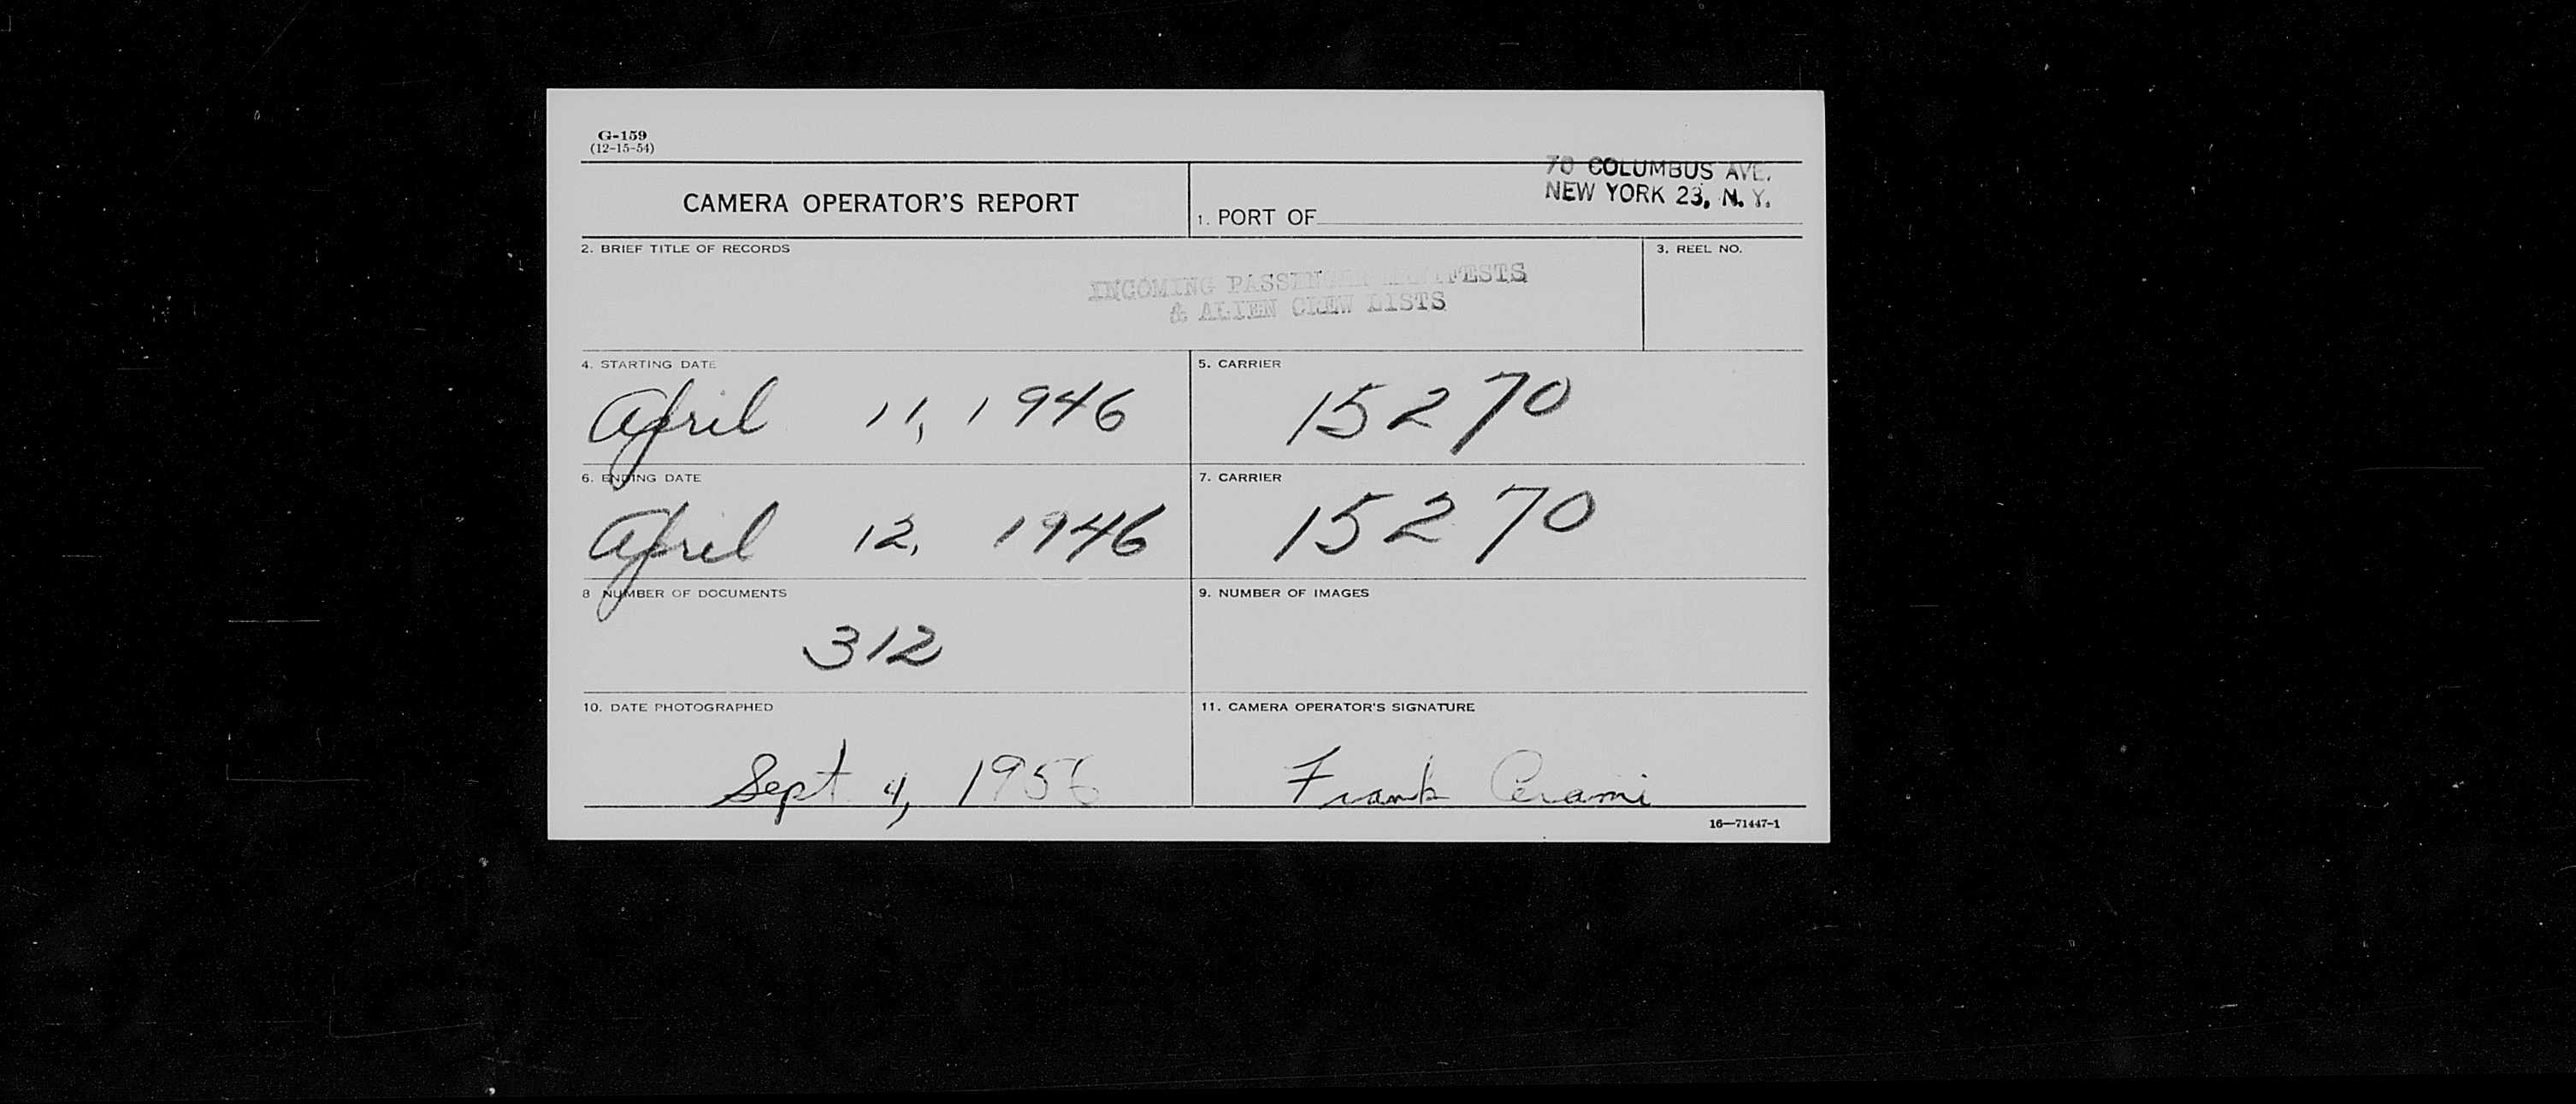 G-159
(12-15-54)
CAMERA OPERATOR'S REPORT
1. PORT OF
70 COLUMBUS AVE.
NEW YORK 23, N. Y.
2. BRIEF TITLE OF RECORDS
INCOMING PASSENGER MANIFESTS
& ALIEN CREW LISTS
3. REEL NO.
4. STARTING DATE
April 11, 1946
5. CARRIER
15270
6. ENDING DATE
April 12, 1946
7. CARRIER
15270
8 NUMBER OF DOCUMENTS
312
9. NUMBER OF IMAGES
10. DATE PHOTOGRAPHED
Sept 4, 1956
11. CAMERA OPERATOR'S SIGNATURE
Frank Cerami
16—71447-1